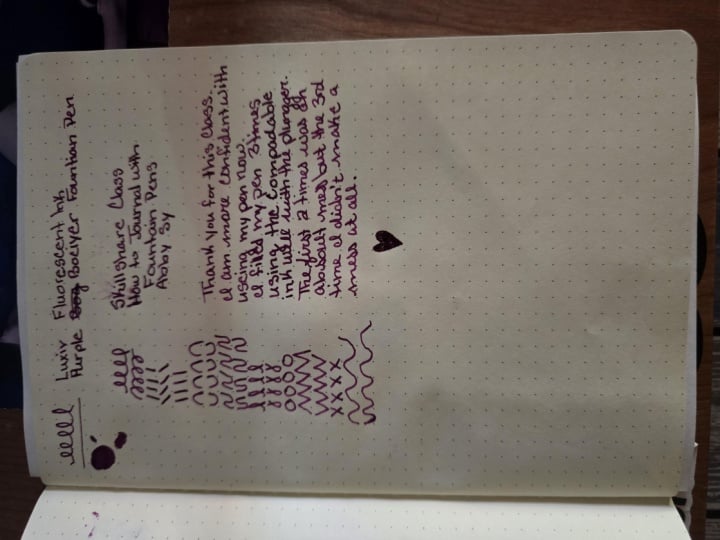 Luxir Fluorescent Ink
Purple Bociyer Fountian Pen
Skillshare Class
How to Journal with
Fountain Pens
Abby Sy
Thank you for this Class.
I am more confident with
useing my pen now.
I filled my pen 3 times
using the Compadable
ink well with the plunger.
The first 2 times was
absolut mess but the 3rd
time I didn't make a
mess at all.
xxxx